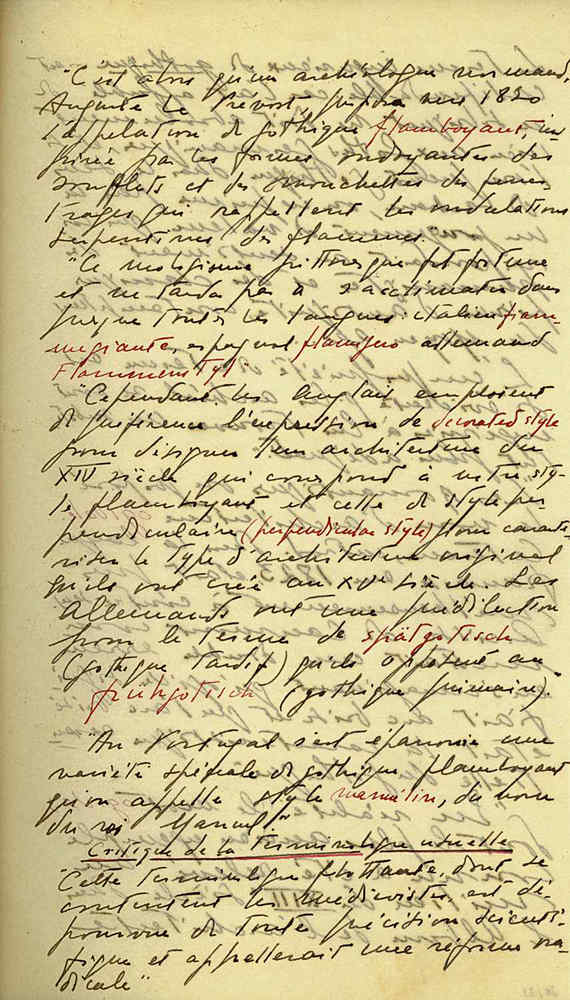 "C'est alors qu'un archéologue normand,
Auguste Le Prévost, proposa vers 1830
l'appellation de gothique flamboyant, ins-
pirée par les formes ondoyantes des
soufflets et des mouchettes des fenes-
trages qui rappellent les ondulations
serpentines des flammes."
"Ce néologisme pittoresque fit fortune
et ne tarda pas à s'acclimater dans
presque toutes les langues: italien fiam-
migiante, espagnol flamigero allemand
Flammenstyl."
"Cependant les Anglais emploient
de préférence l'expression de decorated style
pour désigner leur architecture du
XIV siècle qui correspond à notre sty-
le flamboyant et celle de style per-
pendiculaire (perpendicular style) pour caracté-
riser le type d'architecture original
qu'ils ont créé au XVe siècle. Les
Allemands ont une prédilection
pour le terme de spätgotisch
(gothique tardif) qu'ils opposent au
frühgotisch (gothique primaire)."
"Au Portugal s'est épanouie une
variété spéciale de gothique flamboyant
qu'on appelle style manuélin, du nom
du roi Manuel."
Critique de la terminologie usuelle
"Cette terminologie flottante, dont se
contentent les médiévistes, est dé-
pourvue de toute précision scienti-
fique et appellerait une réforme ra-
dicale"